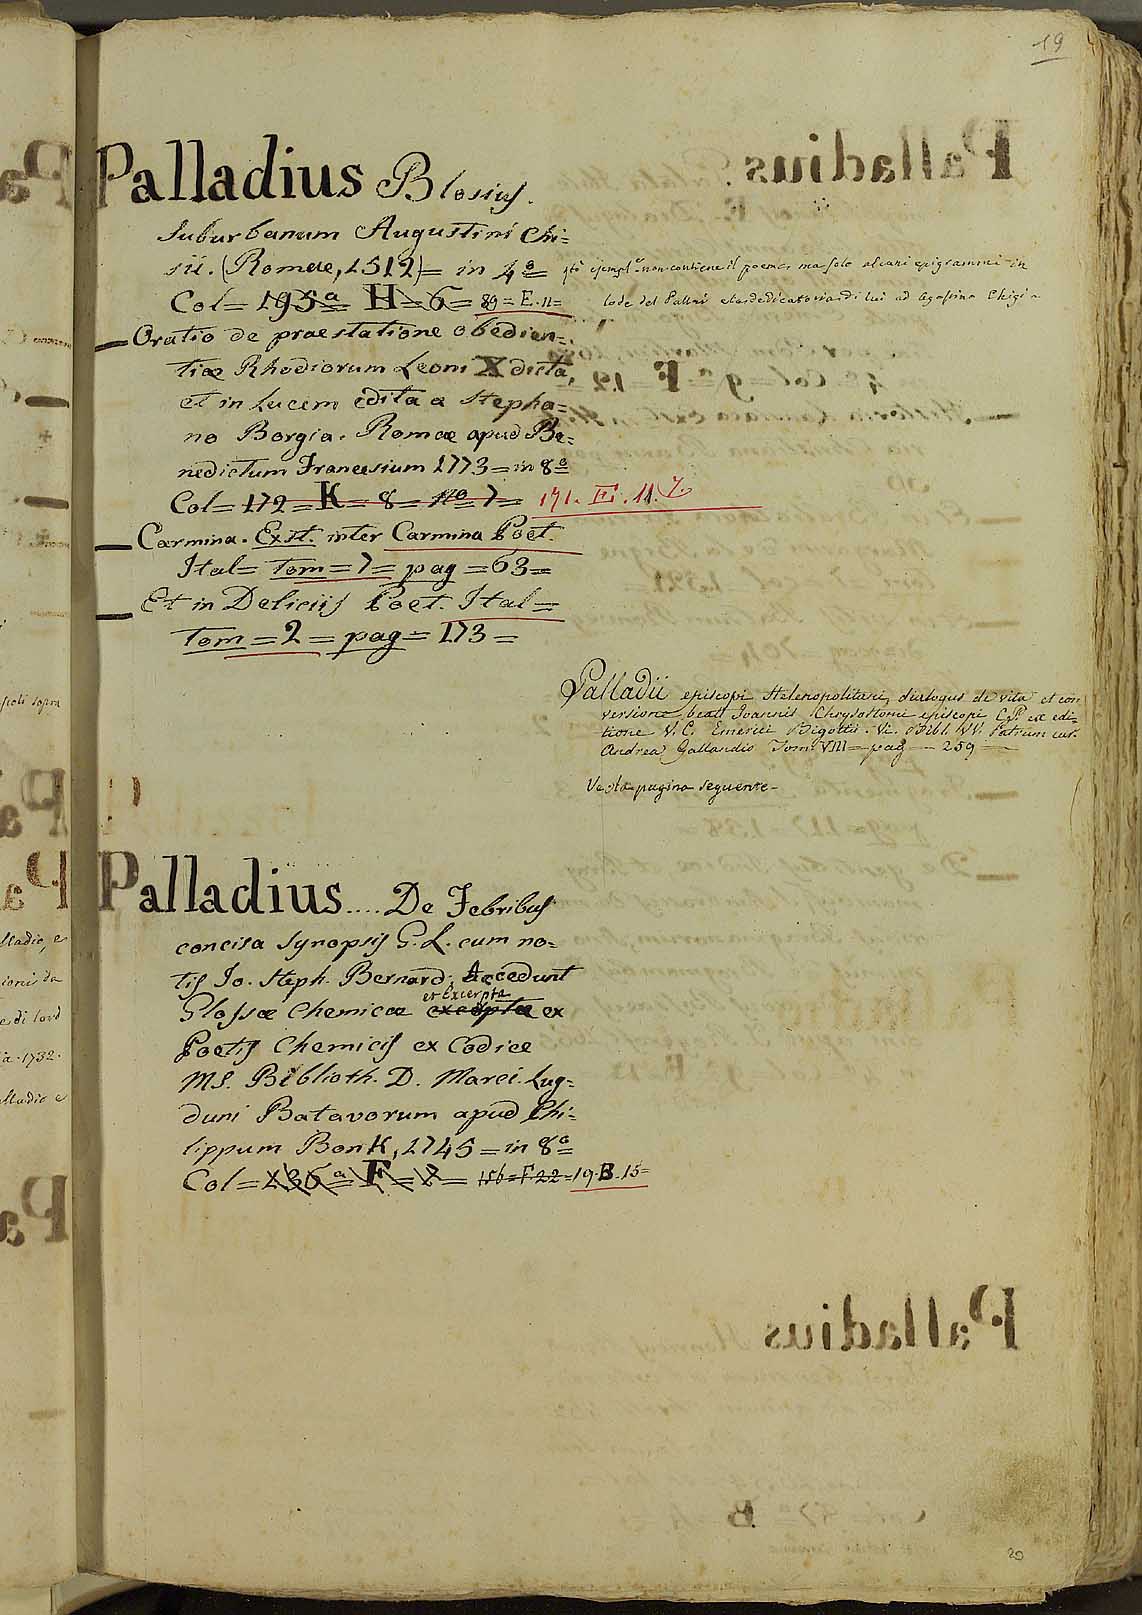 19
Palladius Blosius.
Suburbanum Augustini Chi=
sii. (Romae, 1512)= in 4º=
Col= 195ª= H= 6= 89=E.11=
qto esempl.e non contiene il poema, ma solo alcuni epigrammi in
lode del Palladi e la dedicatoria di lui ad Agostino Chigi
Oratio de praestatione obedien=
tiae Rhodiorum Leoni X dicta,
et in lucem edita a Stepha=
no Borgia. Romae apud Be=
nedictum Francesium 1773=in 8º=
Col= 172= K= 8= nº 7= 171. E. 11. 7.
Carmina. Exst. inter Carmina Poet.
Ital= Tom=7= pag=63=
Et in Deliciis Poet. Ital=
Tom=2= pag= 173=
Palladii episcopi Helenopolitani, dialogus de vita et con
versione beati Joannis Chrysostomi episcopi C.P. ex edi=
tione V.C. Emerici Bigotii. Vi. Bibl. VV. Patrum cur.
Andrea Gallandio Tom VIII= pag= 259=
Volta pagina seguente-
Palladius.... De Febribus
concisa synopsis G.L. cum no=
tis Jo. Steph. Bernard. Accedunt
et Excerpta
Glossae Chemicae excerptae ex
Poetis Chemicis ex Codice
MS. Biblioth. D. Marci. Lug=
duni Batavorum apud Phi=
lippum BonK, 1745=in 8º=
Col= 136ª= F= 2= 156=F.22=19.B.15=
20